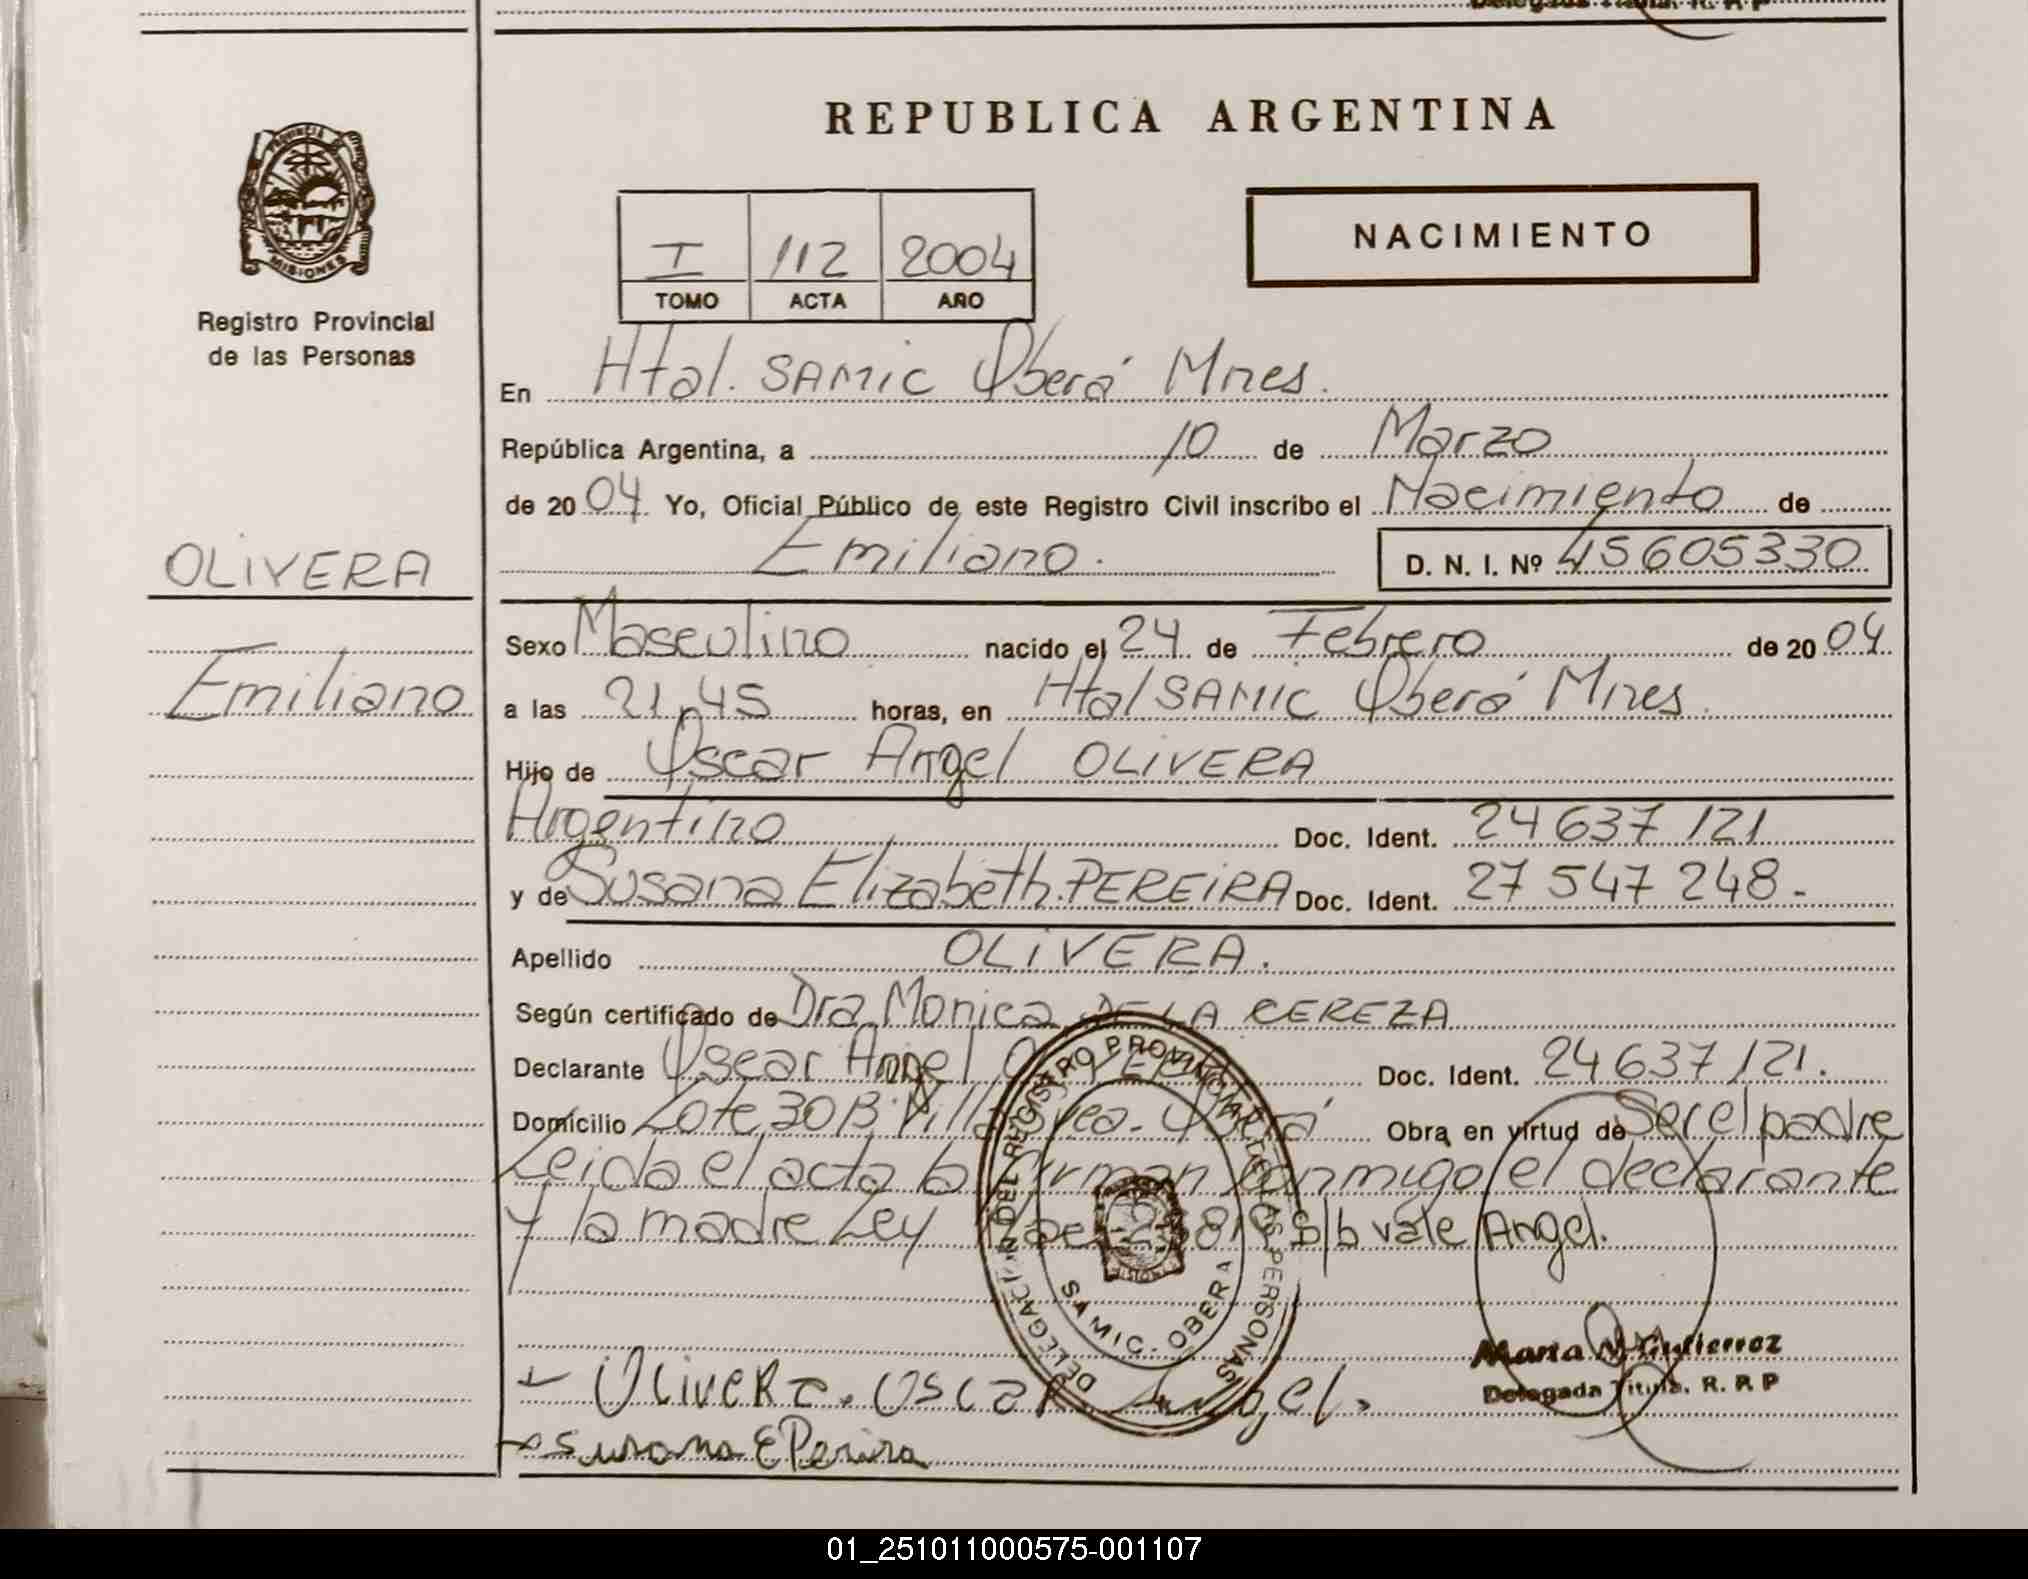 Delegada Titula. R. R P
REPUBLICA ARGENTINA
PROVINCIA DE
MISIONES
Registro Provincial
de las Personas
NACIMIENTO
I 112 2004
TOMO ACTA AÑO
En Htal. SAMIC Oberá Mnes.
República Argentina, a 10 de Marzo
de 20 04 Yo, Oficial Público de este Registro Civil inscribo el Nacimiento de
Emiliano. D. N. I. Nº 45605330
OLIVERA
Emiliano
Sexo Masculino nacido el 24 de Febrero de 20 04
a las 21,45 horas, en Htal SAMIC Oberá Mnes.
Hijo de Oscar Angel OLIVERA
Argentino Doc. Ident. 24 637 121
y de Susana Elizabeth PEREIRA Doc. Ident. 27 547 248.
Apellido OLIVERA.
Según certificado de Dra Monica DE LA CEREZA
Declarante Oscar Angel OLIVERA Doc. Ident. 24 637 121.
Domicilio Lote 30 B. Villa Oberá Obra en virtud de Ser el padre
Leida el acta la firman conmigo el declarante
y la madre Ley s/b vale Angel.
DELEGACION DEL REGISTRO PROVINCIAL DE LAS PERSONAS
SAMIC - OBERA
MISIONES
Olivera. Oscar Angel.
Susana E Pereira
Maria N. Gutierrez
Delegada Titula. R. R P
01_251011000575-001107